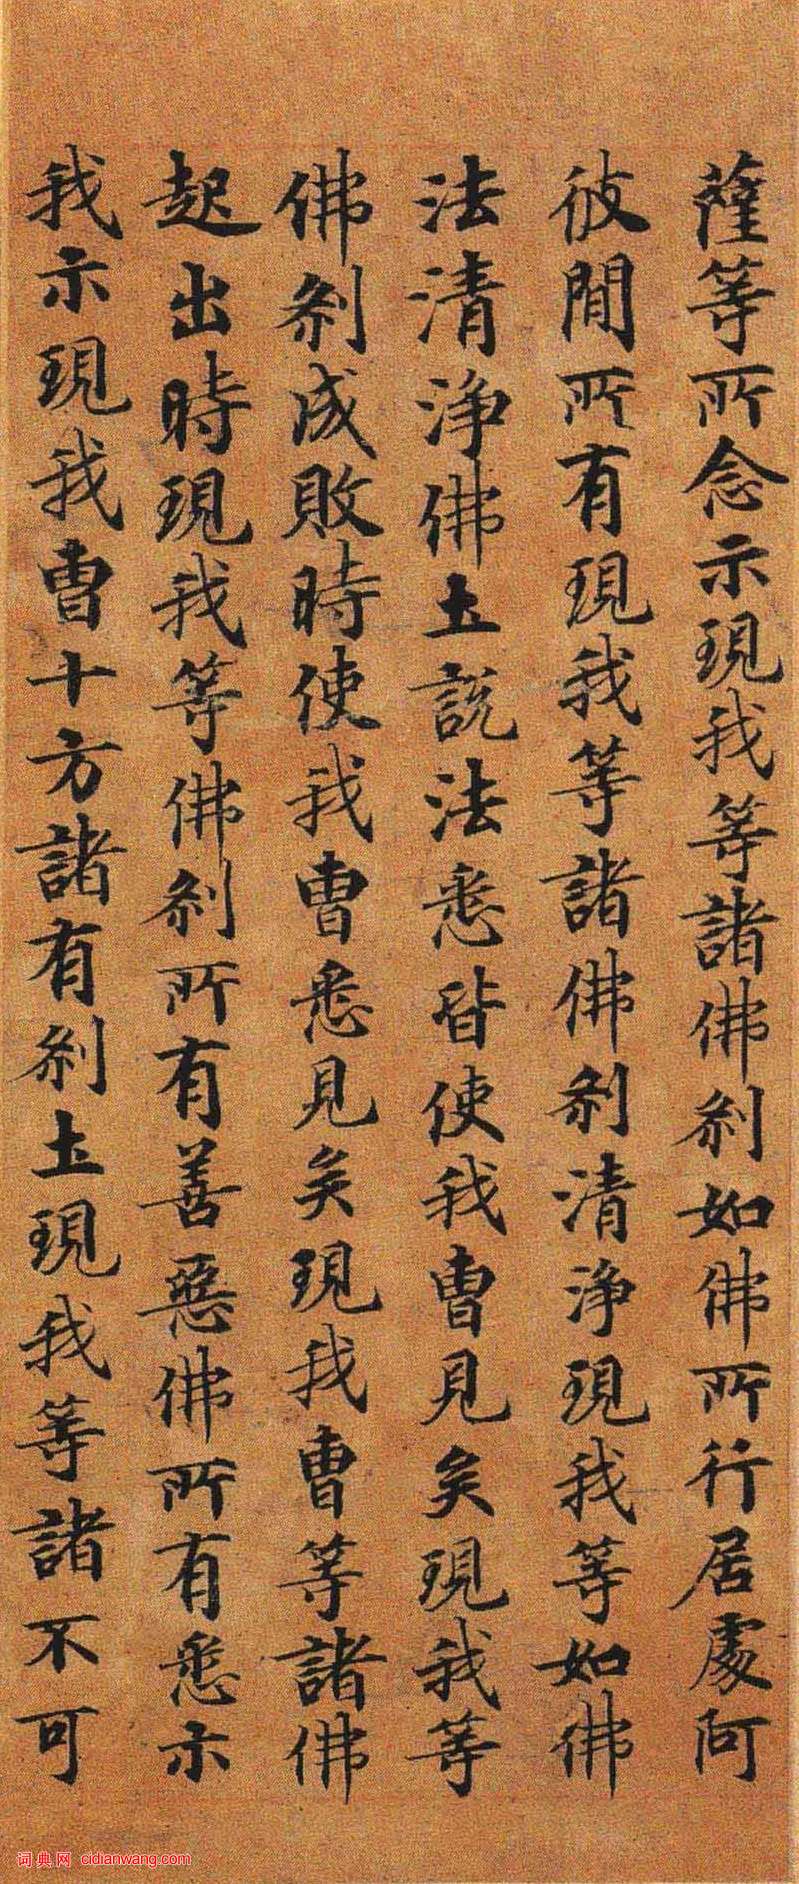 薩等所念示現我等諸佛刹如佛所行居處何
彼間所有現我等諸佛刹清淨現我等如佛
法清淨佛土說法悉皆使我曹見矣現我等
佛刹成敗時使我曹悉見矣現我曹等諸佛
起出時現我等佛刹所有善惡佛所有悉示
我示現我曹十方諸有刹土現我等諸不可
词典网 cidianwang.com